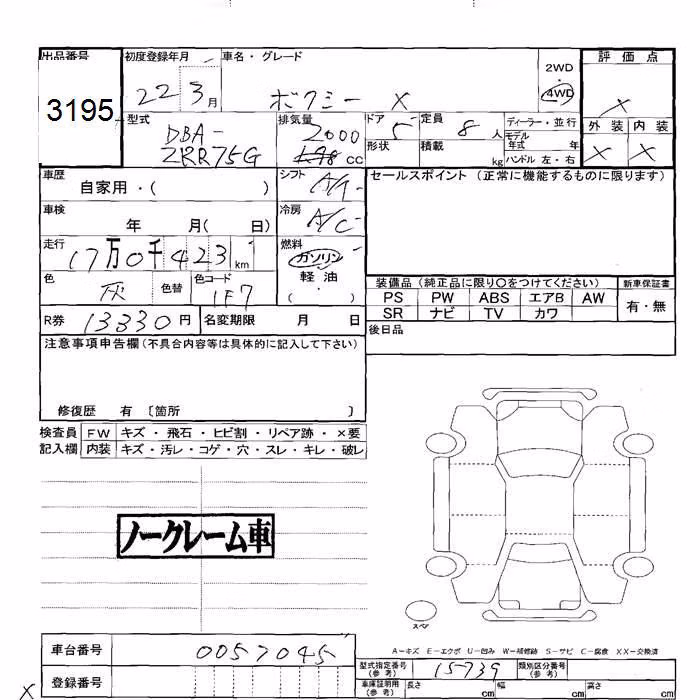 出品番号 初度登録年月 車名・グレード 評価点
3195 22 3月 ボクシー X 2WD・4WD X
型式 排気量 ドア 定員 ディーラー・並行 外装 内装
DBA- 2000 5 8人 モデル年式 年 X X
ZRR75G 1.98 cc 形状 積載 kg ハンドル 左・右
車歴 シフト A/T セールスポイント (正常に機能するものに限ります)
自家用・( )
車検 冷房 A/C
年 月( 日)
走行 燃料
17万0千423km ガソリン
軽油
( )
色 灰 色替 色コード 1F7
装備品 (純正品に限り○をつけてください) 新車保証書
PS PW ABS エアB AW 有・無
SR ナビ TV カワ
R券 13330円 名変期限 月 日
後日品
注意事項申告欄 (不具合内容等は具体的に記入して下さい)
修復歴 有 〔箇所 〕
検査員 FW キズ・飛石・ヒビ割・リペア跡・×要
記入欄 内装 キズ・汚レ・コゲ・穴・スレ・キレ・破レ
ノークレーム車
スペア
A-キズ E-エクボ U-凹み W-補修跡 S-サビ C-腐食 XX-交換済
車台番号 0057045
型式指定番号 (参考) 15739 類別区分番号 (参考)
登録番号
車庫証明用 (参考) 長さ cm 幅 cm 高さ cm
X